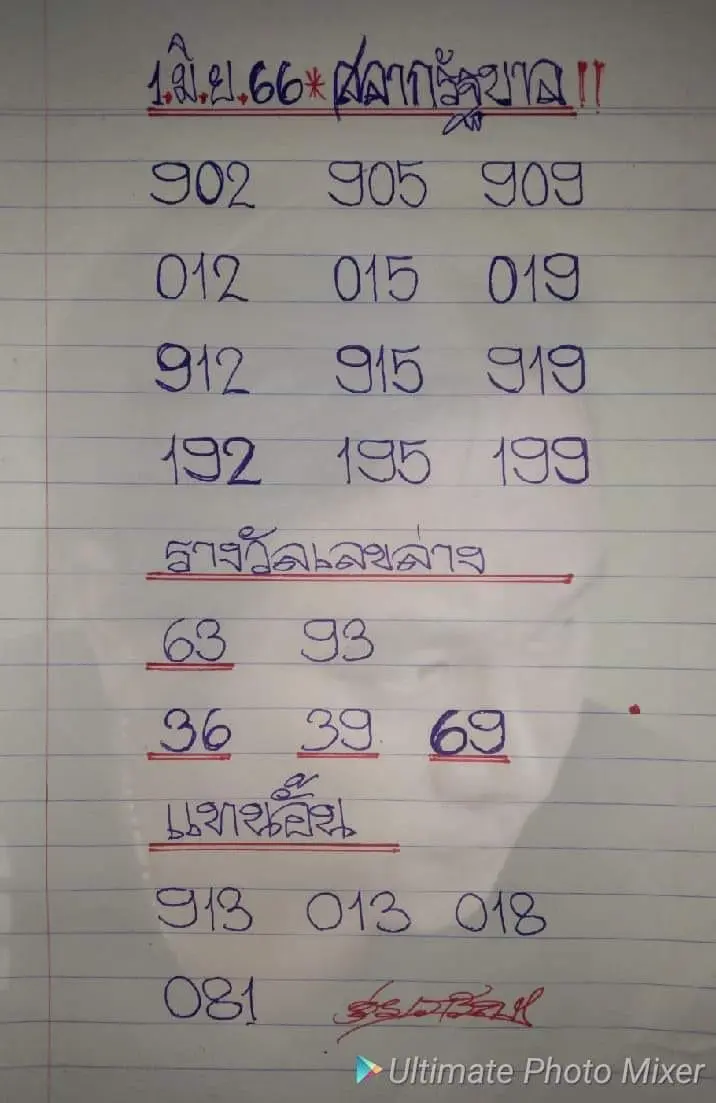 1.มิ.ย.66*สลากรัฐบาล!!
902 905 909
012 015 019
912 915 919
192 195 199
รางวัลเลขล่าง
63 93
36 39 69
แทนอั้น
913 013 018
081
Ultimate Photo Mixer